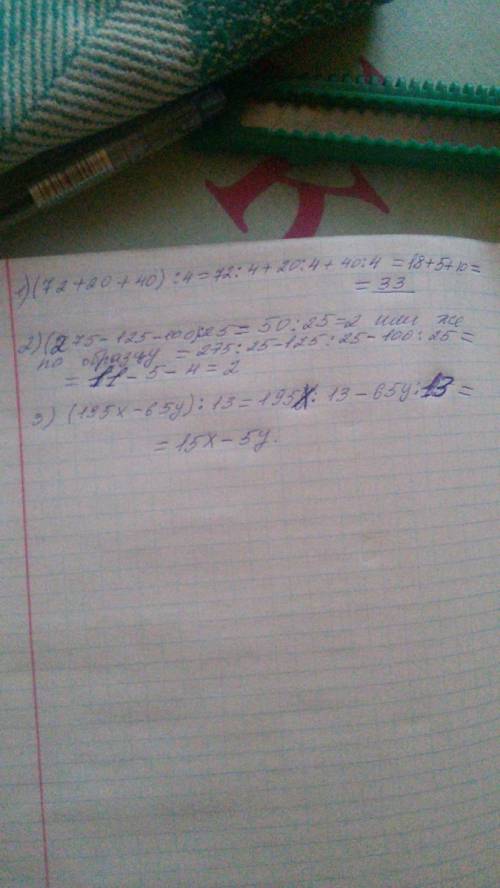 1) (72+20+40):4=72:4+20:4+40:4=18+5+10=
=33
2) (275-125-100):25=50:25=2 или же
по образцу =275:25-125:25-100:25=
=11-5-4=2
3) (195x-65y):13=195x:13-65y:13=
=15x-5y.